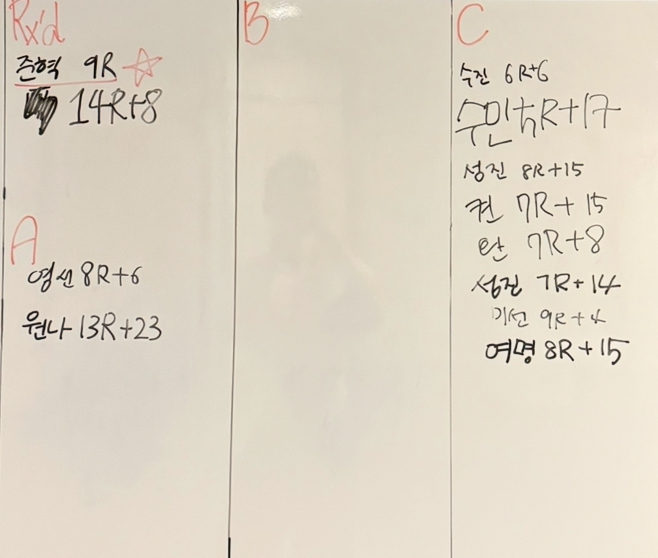 Rx'd
준혁 9R
14R+8
A
영선 8R+6
원나 13R+23
B
C
수진 6R+6
수민 5R+17
성진 8R+15
켠 7R+15
란 7R+8
성진 7R+14
미선 9R+4
여명 8R+15